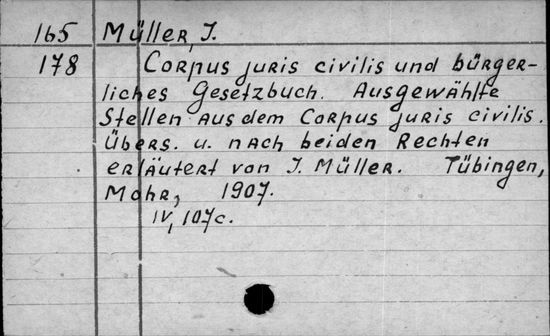 165 Müller, J.
178 Corpus juris civilis und bürger-
liches Gesetzbuch. Ausgewählte
Stellen aus dem Corpus juris civilis.
Übers. u. nach beiden Rechten
erläutert von J. Müller. Tübingen,
Mohr, 1907.
IV, 107c.